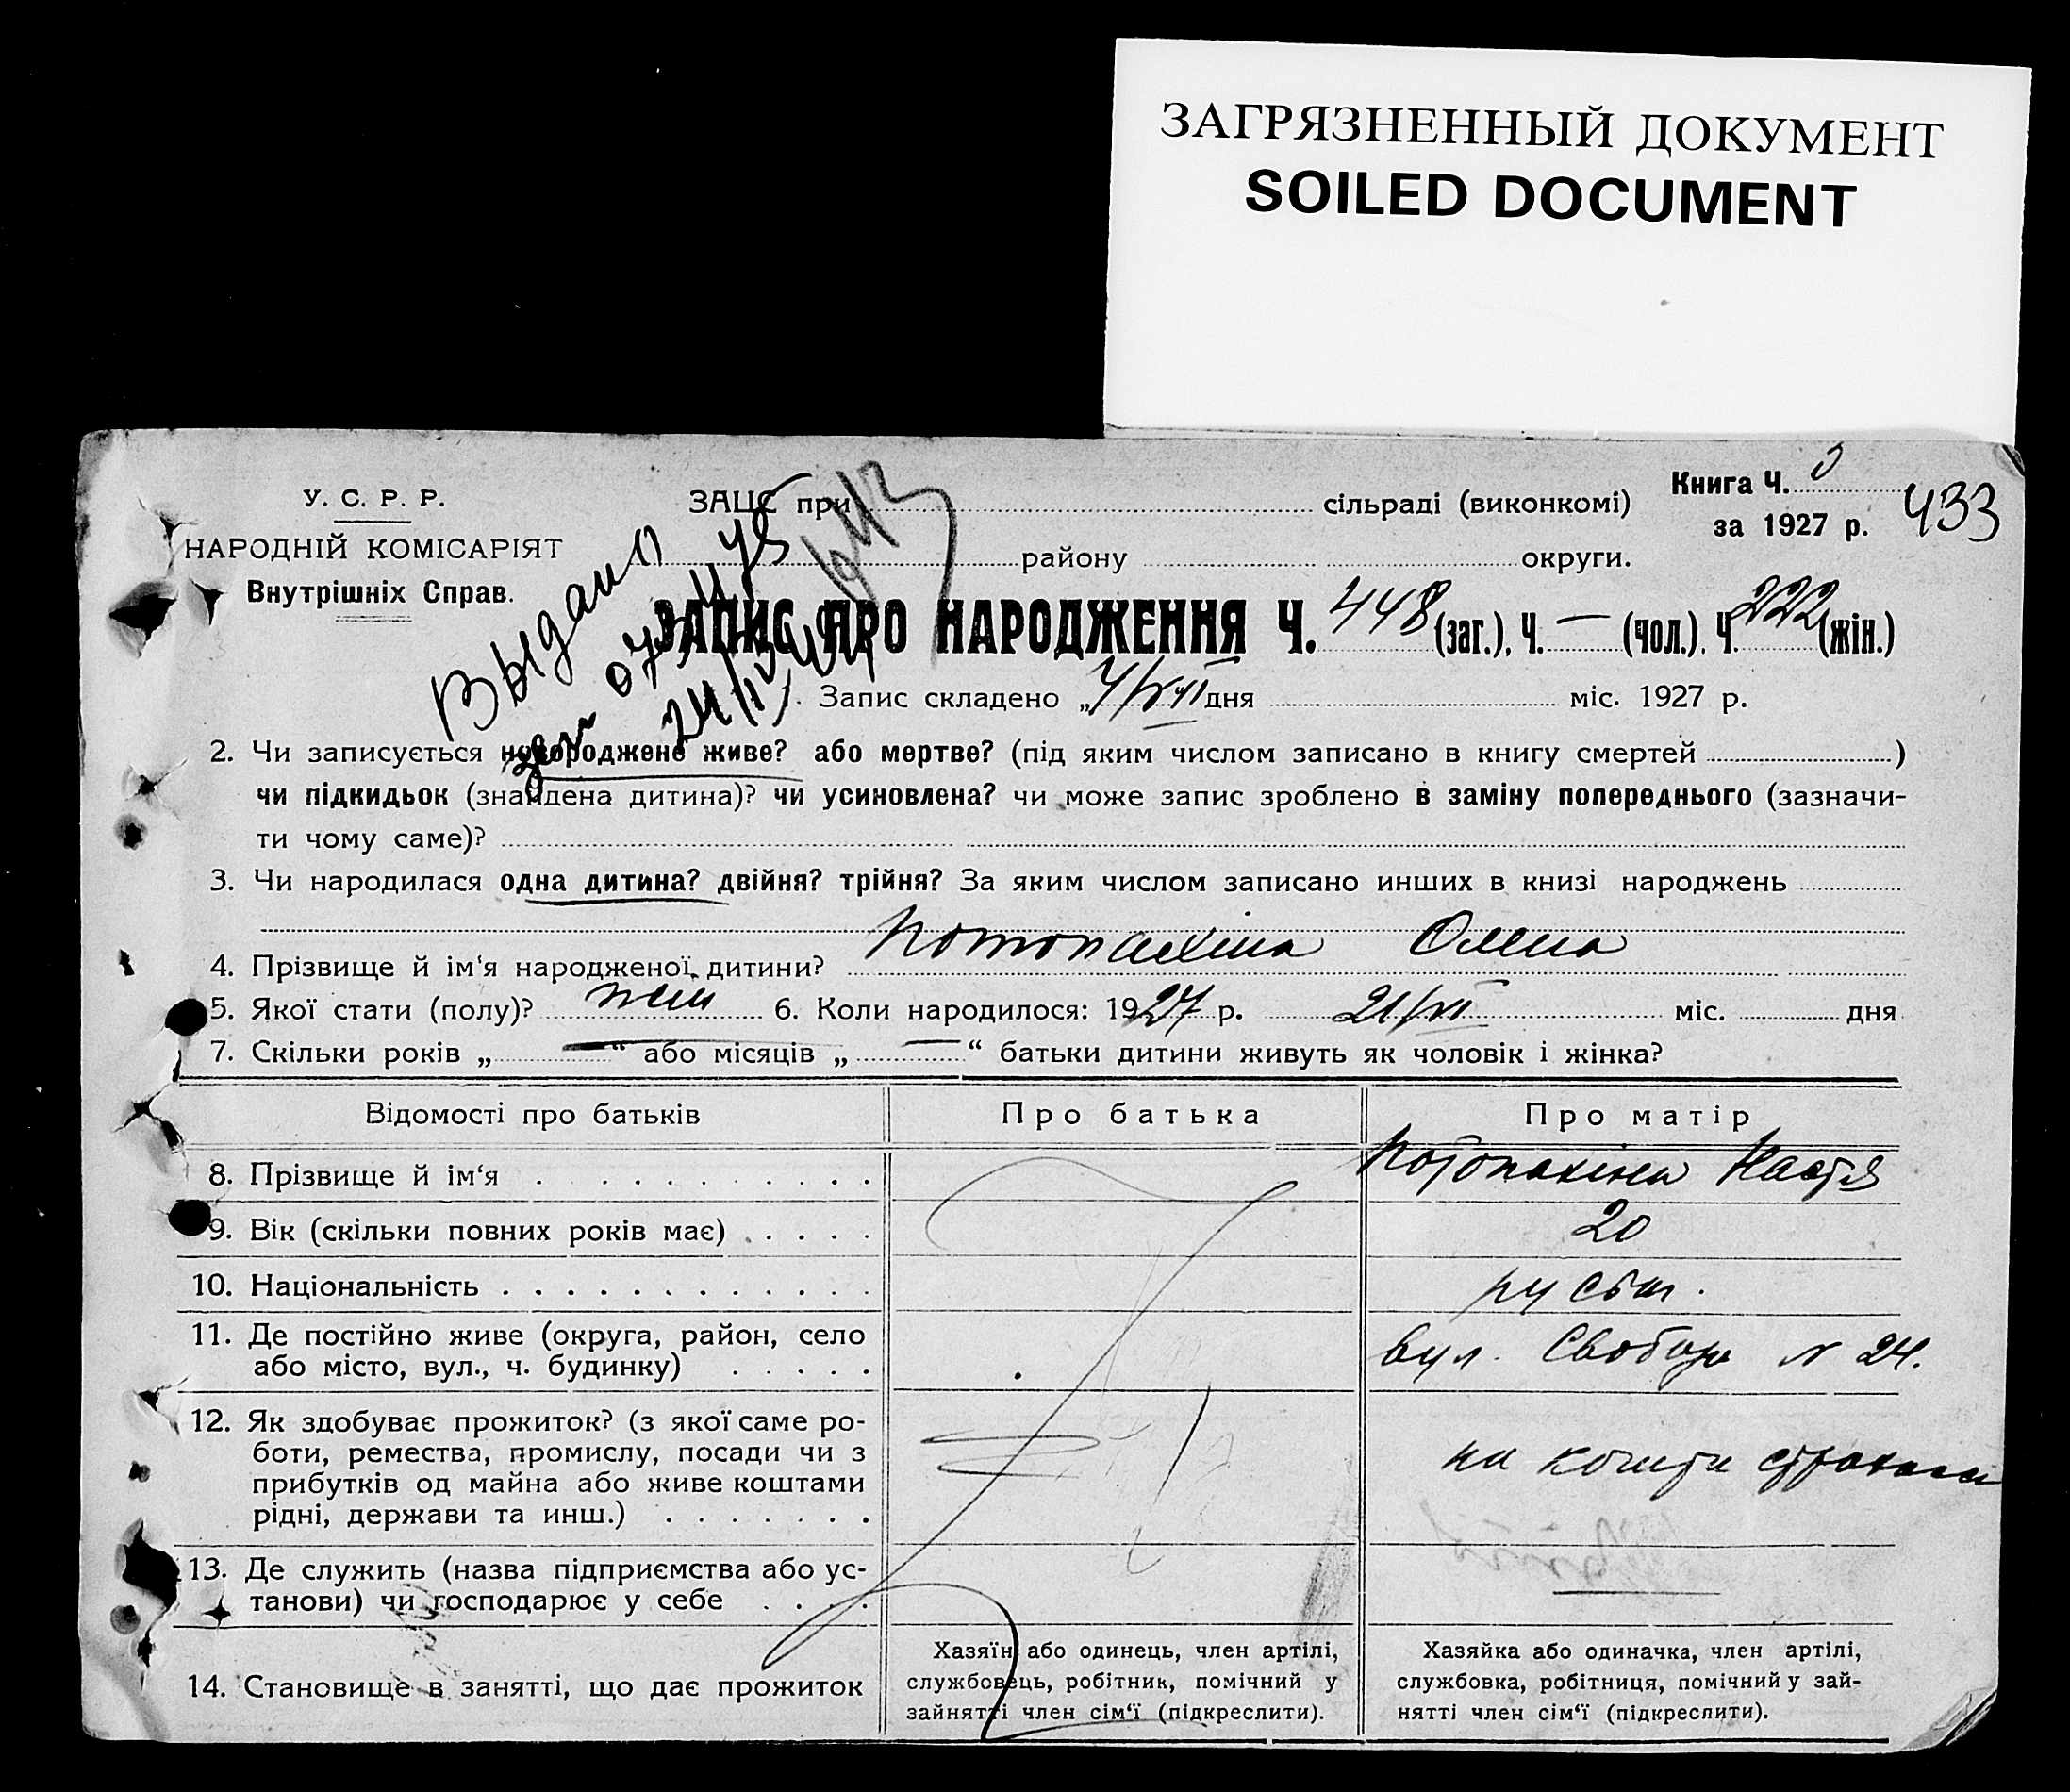 ЗАГРЯЗНЕННЫЙ ДОКУМЕНТ
SOILED DOCUMENT
У. С. Р. Р.
НАРОДНІЙ КОМІСАРІЯТ
Внутрішніх Справ.
ЗАЦС при сільраді (виконкомі)
району округи.
Книга Ч.
за 1927 р. 433
Выдано
24/IV
ЗАПИС ПРО НАРОДЖЕННЯ Ч. 448 (заг.), Ч. — (чол.), Ч. 222 (жін.)
Запис складено „ дня міс. 1927 р.
2. Чи записується новороджене живе? або мертве? (під яким числом записано в книгу смертей )
чи підкидьок (знайдена дитина)? чи усиновлена? чи може запис зроблено в заміну попереднього (зазначи-
ти чому саме)?
3. Чи народилася одна дитина? двійня? трійня? За яким числом записано инших в книзі народжень
4. Прізвище й ім‘я народженої дитини? Котопахіна Олена
5. Якої стати (полу)? жін 6. Коли народилося: 1927 р. 21/VII міс. дня
7. Скільки років „ — “ або місяців „ — “ батьки дитини живуть як чоловік і жінка?
Відомості про батьків Про батька Про матір
8. Прізвище й ім‘я Котопахіна Настя
9. Вік (скільки повних років має) 20
10. Національність
11. Де постійно живе (округа, район, село
або місто, вул., ч. будинку) вул. Свободи N 24.
12. Як здобуває прожиток? (з якої саме ро-
боти, ремества, промислу, посади чи з
прибутків од майна або живе коштами
рідні, держави та инш.) на кошти
13. Де служить (назва підприємства або ус-
танови) чи господарює у себе —
14. Становище в занятті, що дає прожиток
Хазяїн або одинець, член артілі,
службовець, робітник, помічний у
зайнятті член сім‘ї (підкреслити).
Хазяйка або одиначка, член артілі,
службовка, робітниця, помічний у зай-
нятті член сім‘ї (підкреслити).